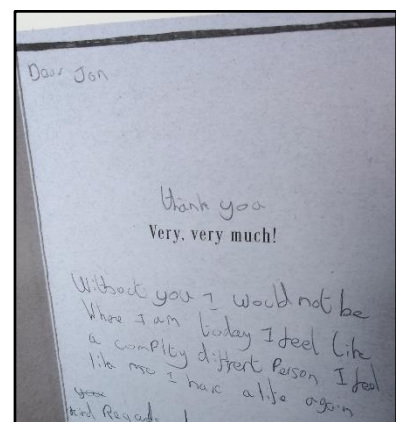 Dear Jon
thank you
Very, very much!
Without you I would not be
Where I am today I feel like
a complty diffrent Person I feel
like me I have a life again
kind Regards